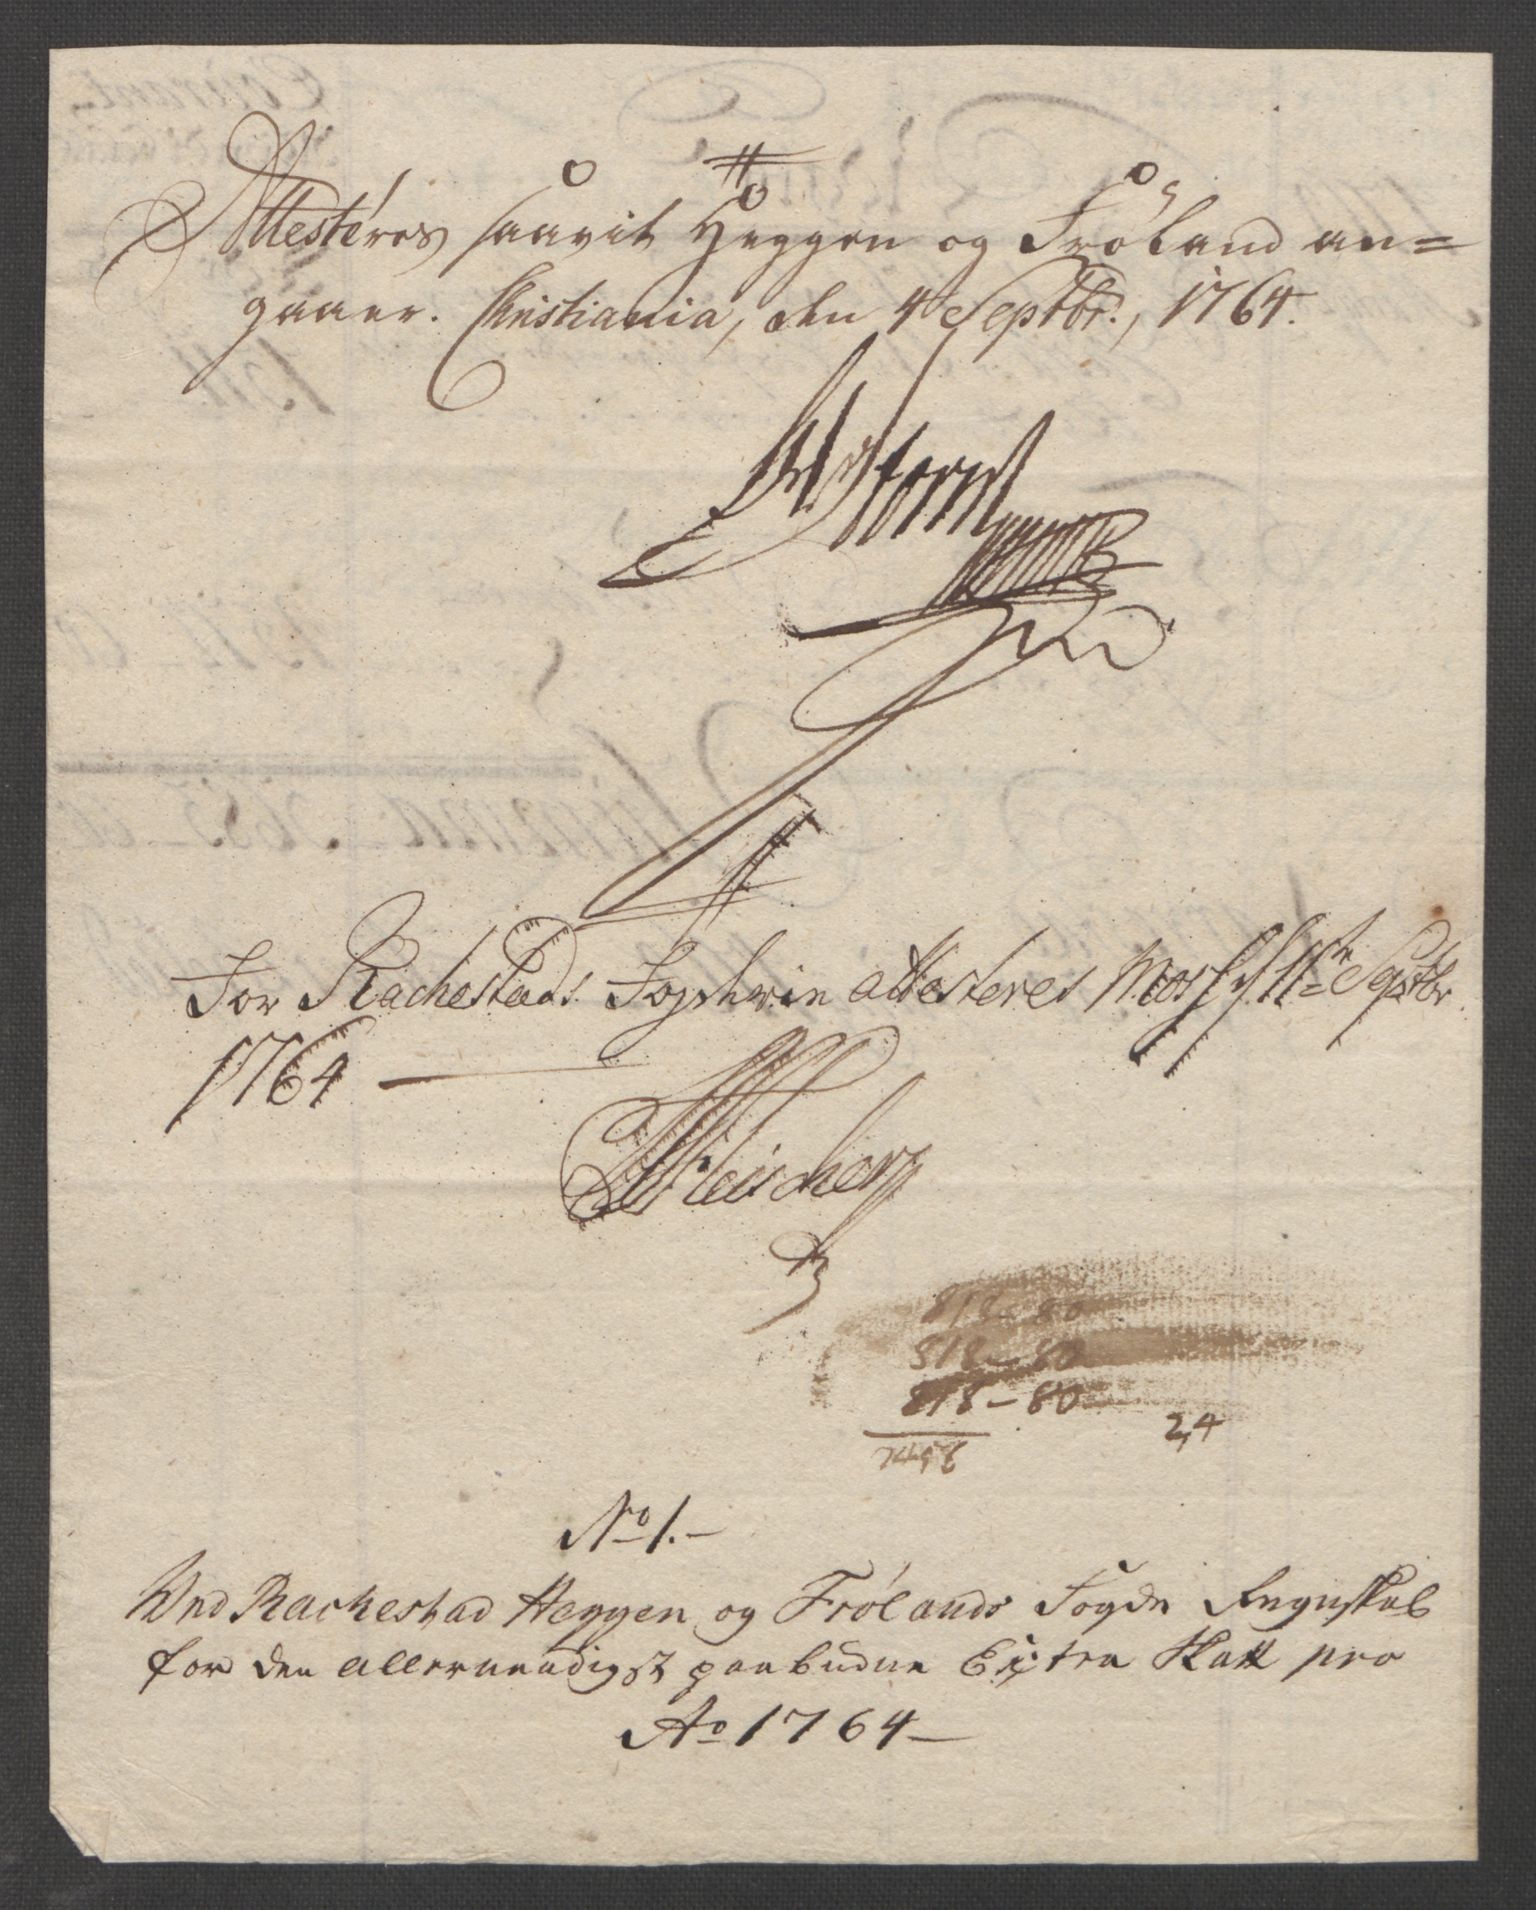 Attesteres saavit Heggen og Frøland an=
gaaer. Christiania, den 4 Septbr., 1764.
For Rachestads Fogderie attesteres Moss d 11te Septbr
1764
818-80
818-80
818-80
24
No 1.
Wed Rackestad Heggen og Frølands Fogde Regnskab
for den allernaadigst paabudne Extra Skatt pro
Ao 1764